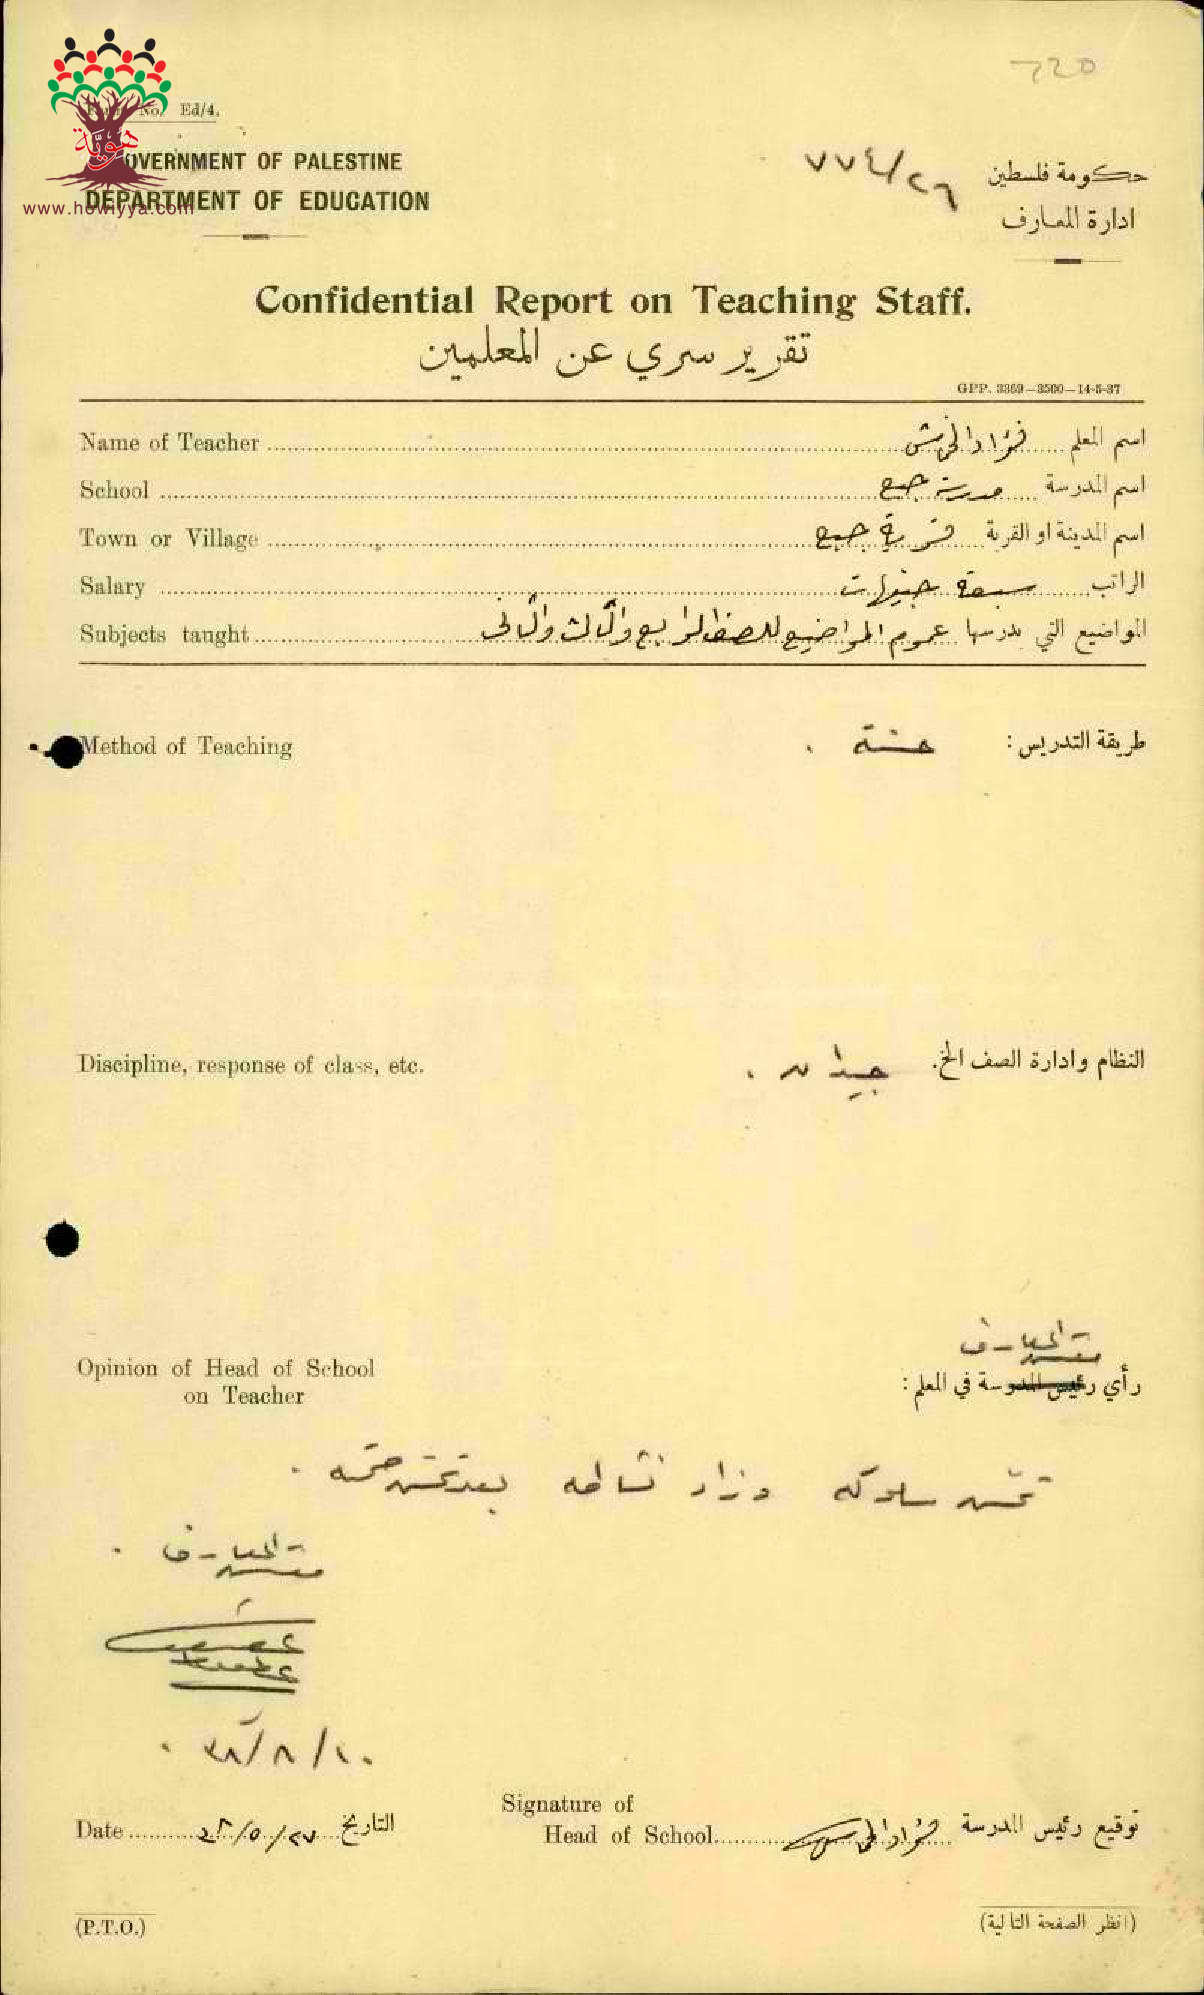 720
Form No. Ed/4.
هوية
www.howiyya.com
GOVERNMENT OF PALESTINE
DEPARTMENT OF EDUCATION
٧٧٤/٢٦
حكومة فلسطين
ادارة المعارف
Confidential Report on Teaching Staff.
تقرير سري عن المعلمين
GPP. 3369—3500—14-5-37
Name of Teacher اسم المعلم فؤاد الخرش
School اسم المدرسة مدرسة جبع
Town or Village اسم المدينة او القرية قرية جبع
Salary الراتب سبعة جنيهات
Subjects taught المواضيع التي يدرسها عموم المواضيع للصف الرابع والثالث والثاني
Method of Teaching طريقة التدريس: حسنة .
Discipline, response of class, etc. النظام وادارة الصف الخ. جيدان .
مفتش المعارف
Opinion of Head of School
on Teacher
رأي رئيس المدرسة في المعلم:
تحسن سلوكه وزاد نشاطه بعد تحسن صحته .
مفتش المعارف .
٣٨/٨/١٠
Date ٣٨/٥/٢٧ التاريخ
Signature of
Head of School توقيع رئيس المدرسة
(P.T.O.)
(انظر الصفحة التالية)